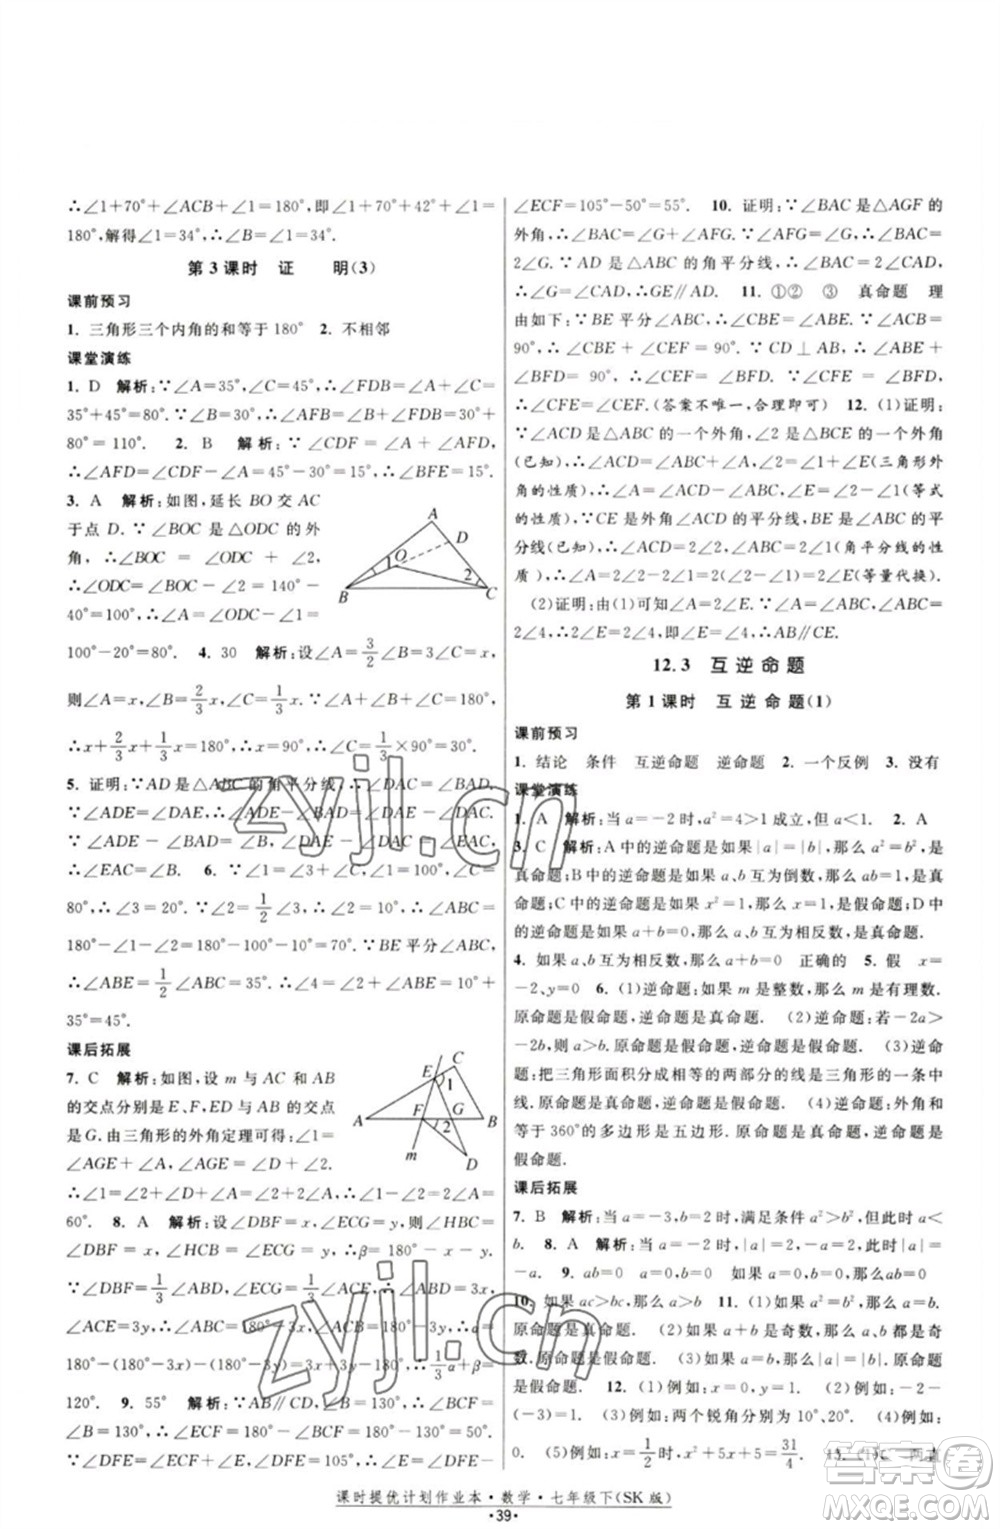 ∴∠1+70°+∠ACB+∠1=180°,即∠1+70°+42°+∠1=
180°,解得∠1=34°,∴∠B=∠1=34°.
第3课时 证 明(3)
课前预习
1. 三角形三个内角的和等于180° 2. 不相邻
课堂演练
1. D 解析:∵∠A=35°,∠C=45°,∴∠FDB=∠A+∠C=
35°+45°=80°.∵∠B=30°,∴∠AFB=∠B+∠FDB=30°+
80°=110°. 2. B 解析:∵∠CDF=∠A+∠AFD,
∴∠AFD=∠CDF-∠A=45°-30°=15°.∴∠BFE=15°.
3. A 解析:如图,延长BO交AC
于点D.∵∠BOC是△ODC的外
角,∴∠BOC=∠ODC+∠2,
∴∠ODC=∠BOC-∠2=140°-
40°=100°,∴∠A=∠ODC-∠1=
100°-20°=80°. 4. 30 解析:设∠A=3/2∠B=3∠C=x,
则∠A=x,∠B=2/3x,∠C=1/3x.∵∠A+∠B+∠C=180°,
∴x+2/3x+1/3x=180°,∴x=90°,∴∠C=1/3×90°=30°.
5. 证明:∵AD是△ABC的角平分线,∴∠DAC=∠BAD.
∵∠ADE=∠DAE,∴∠ADE-∠BAD=∠DAE-∠DAC.
∵∠B=∠ADE-∠BAD,∠EAC=∠DAE-∠DAC,
∴∠EAC=∠B 6. ∵∠1=∠3+∠C,∠1=100°,∠C=
80°,∴∠3=20°.∵∠2=1/2∠3,∴∠2=10°,∴∠ABC=
180°-∠1-∠2=180°-100°-10°=70°.∵BE平分∠ABC,
∴∠ABE=1/2∠ABC=35°.∴∠4=∠2+∠ABE=10°+
35°=45°.
课后拓展
7. C 解析:如图,设m与AC和AB
的交点分别是E、F,ED与AB的交点
是G.由三角形的外角定理可得:∠1=
∠AGE+∠A,∠AGE=∠2+∠D,
∴∠1=∠2+∠D+∠A=∠2+2∠A,∴∠1-∠2=2∠A=
60°. 8. A 解析:设∠DBF=x,∠ECG=y,则∠HBC=
∠DBF=x,∠HCB=∠ECG=y,∴β=180°-x-y.
∵∠DBF=1/3∠ABD,∠ECG=1/3∠ACE,∴∠ABD=3x,
∠ACE=3y,∴∠ABC=180°-3x,∠ACB=180°-3y,∴α=
180°-(180°-3x)-(180°-3y)=3x+3y-180°,∴1/3α+β=
120°. 9. 55° 解析:∵AB∥CD,∠ABE=130°,∴∠DFE=
∠ABE=130°.∵∠DFE=∠C+∠CEF,∠C=50°,
∴∠DFE=∠DFE-∠C=130°-50°=80°.
∠ECF=105°-50°=55°. 10. 证明:∵∠BAC是△AGF的
外角,∴∠BAC=∠G+∠AFG.∵∠AFG=∠G,
∴∠BAC=2∠G.∵AD是∠BAC的角平分线,∴∠BAC=
2∠CAD,∴∠G=∠CAD,∴GE∥AD. 11. ①② ③ 真命题 理
由如下:∵BE平分∠ABC,∴∠ABE=∠CBE.∵∠ACB=
90°,∴∠CBE+∠CEF=90°.∵CD⊥AB,∴∠ABE+
∠BFD=90°,∴∠CEF=∠BFD.∵∠BFD=∠CFE,
∴∠CFE=∠CEF.(答案不唯一,合理即可) 12. (1)证明:
∵∠ACD是△ABC的一个外角,∠2是△BCE的一个外角
(已知),∴∠ACD=∠ABC+∠A,∠2=∠1+∠E(三角形外
角的性质),∴∠A=∠ACD-∠ABC,∠E=∠2-∠1(等式
的性质).∵CE是外角∠ACD的平分线,BE是∠ABC的平
分线(已知),∴∠ACD=2∠2,∠ABC=2∠1(角平分线的性
质),∴∠A=2∠2-2∠1=2(∠2-∠1)=2∠E(等量代换).
(2)证明:由(1)可知∠A=2∠E.∵∠A=∠ABC,∠ABC=
2∠4,∴2∠E=2∠4,∴∠E=∠4,∴AB∥CE.
12.3 互逆命题
第1课时 互逆命题(1)
课前预习
1. 结论 条件 互逆命题 逆命题 2. 一个反例 3. 没有
课堂演练
1. A 解析:当a=-2时,a²=4>1成立,但a<1. 2. A
3. C 解析:A中的逆命题是如果|a|=|b|,那么a²=b²,是
真命题;B中的逆命题是如果a、b互为倒数,那么ab=1,是真
命题;C中的逆命题是如果x²=1,那么x=1,是假命题;D中
的逆命题是如果a、b互为相反数,那么a+b=0,是真命题.
4. 如果a、b互为相反数,那么a+b=0 正确的 5. 假 x=
-2,y=0 6. (1)逆命题:如果m是整数,那么m是有理数.
原命题是假命题,逆命题是真命题. (2)逆命题:如果-2a>
-2b,那么a<b.原命题是真命题,逆命题是真命题. (3)逆命
题:把三角形面积分成相等的两部分的线是三角形的一条中
线.原命题是真命题,逆命题是假命题. (4)逆命题:外角和
等于360°的多边形是五边形.原命题是真命题,逆命题是
假命题.
课后拓展
7. B 解析:当a=-3,b=2时,满足条件a²>b²,但此时a<
b. 8. A 解析:如果a=-2,那么|a|=2,此时|a|=
-a. 9. ab=0 a=0 如果a=0,那么ab=0
10. 如果ac>bc,那么a>b 11. (1)如果a²=b²,那么a=b.
原命题是真命题,逆命题是假命题. (2)如果a+b是奇数,那么a、b都是奇数.
(3)如果a=b,那么|a|=|b|.原命题
是假命题. 12. (1)例如:x=0,y=-2. (2)例如:-2-
(-3)=1. (3)例如:两个锐角分别为10°、20°. (4)例如:
0. (5)例如:x=1/2时,x²+5x+5=31/4.
课时提优计划作业本·数学·七年级下(SK版)
·39·
zyjl.cn
zyjl.cn
答案圈
A
B
C
D
O
1
2
E
C
F
G
A
B
D
m
1
2